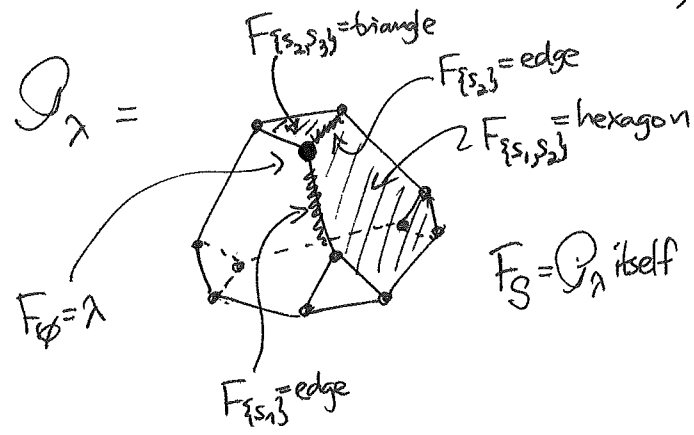 F_{{s₂,s₃}} = triangle
F_{{s₂}} = edge
𝒫_λ =
F_{{s₁,s₂}} = hexagon
F_S = 𝒫_λ itself
F_∅ = λ
F_{{s₁}} = edge